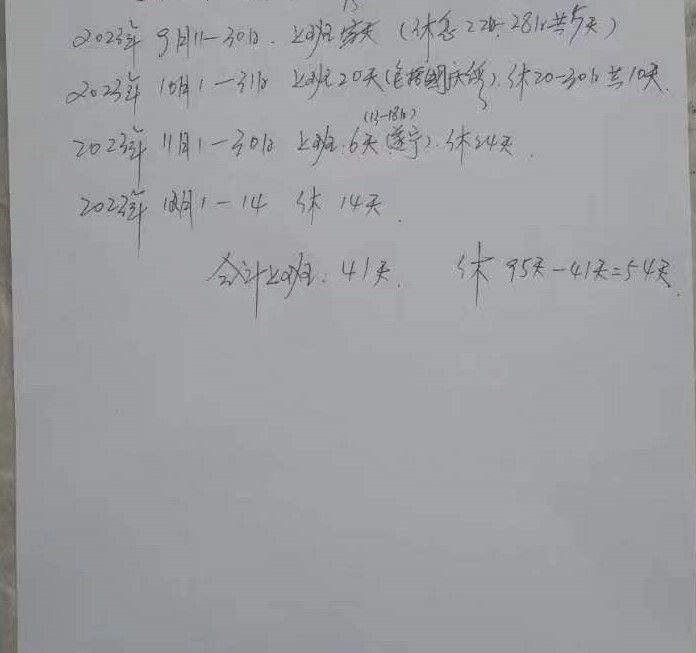 2023年9月11-30日.上班15天(休息22日.28日共5天)
2023年10月1-31日 上班20天(包括国庆).休20-30日共10天.
2023年11月1-30日 上班.6天(13-18日)(遂宁).休24天.
2023年12月1-14 休14天.
合计上班:41天. 休95天-41天=54天.